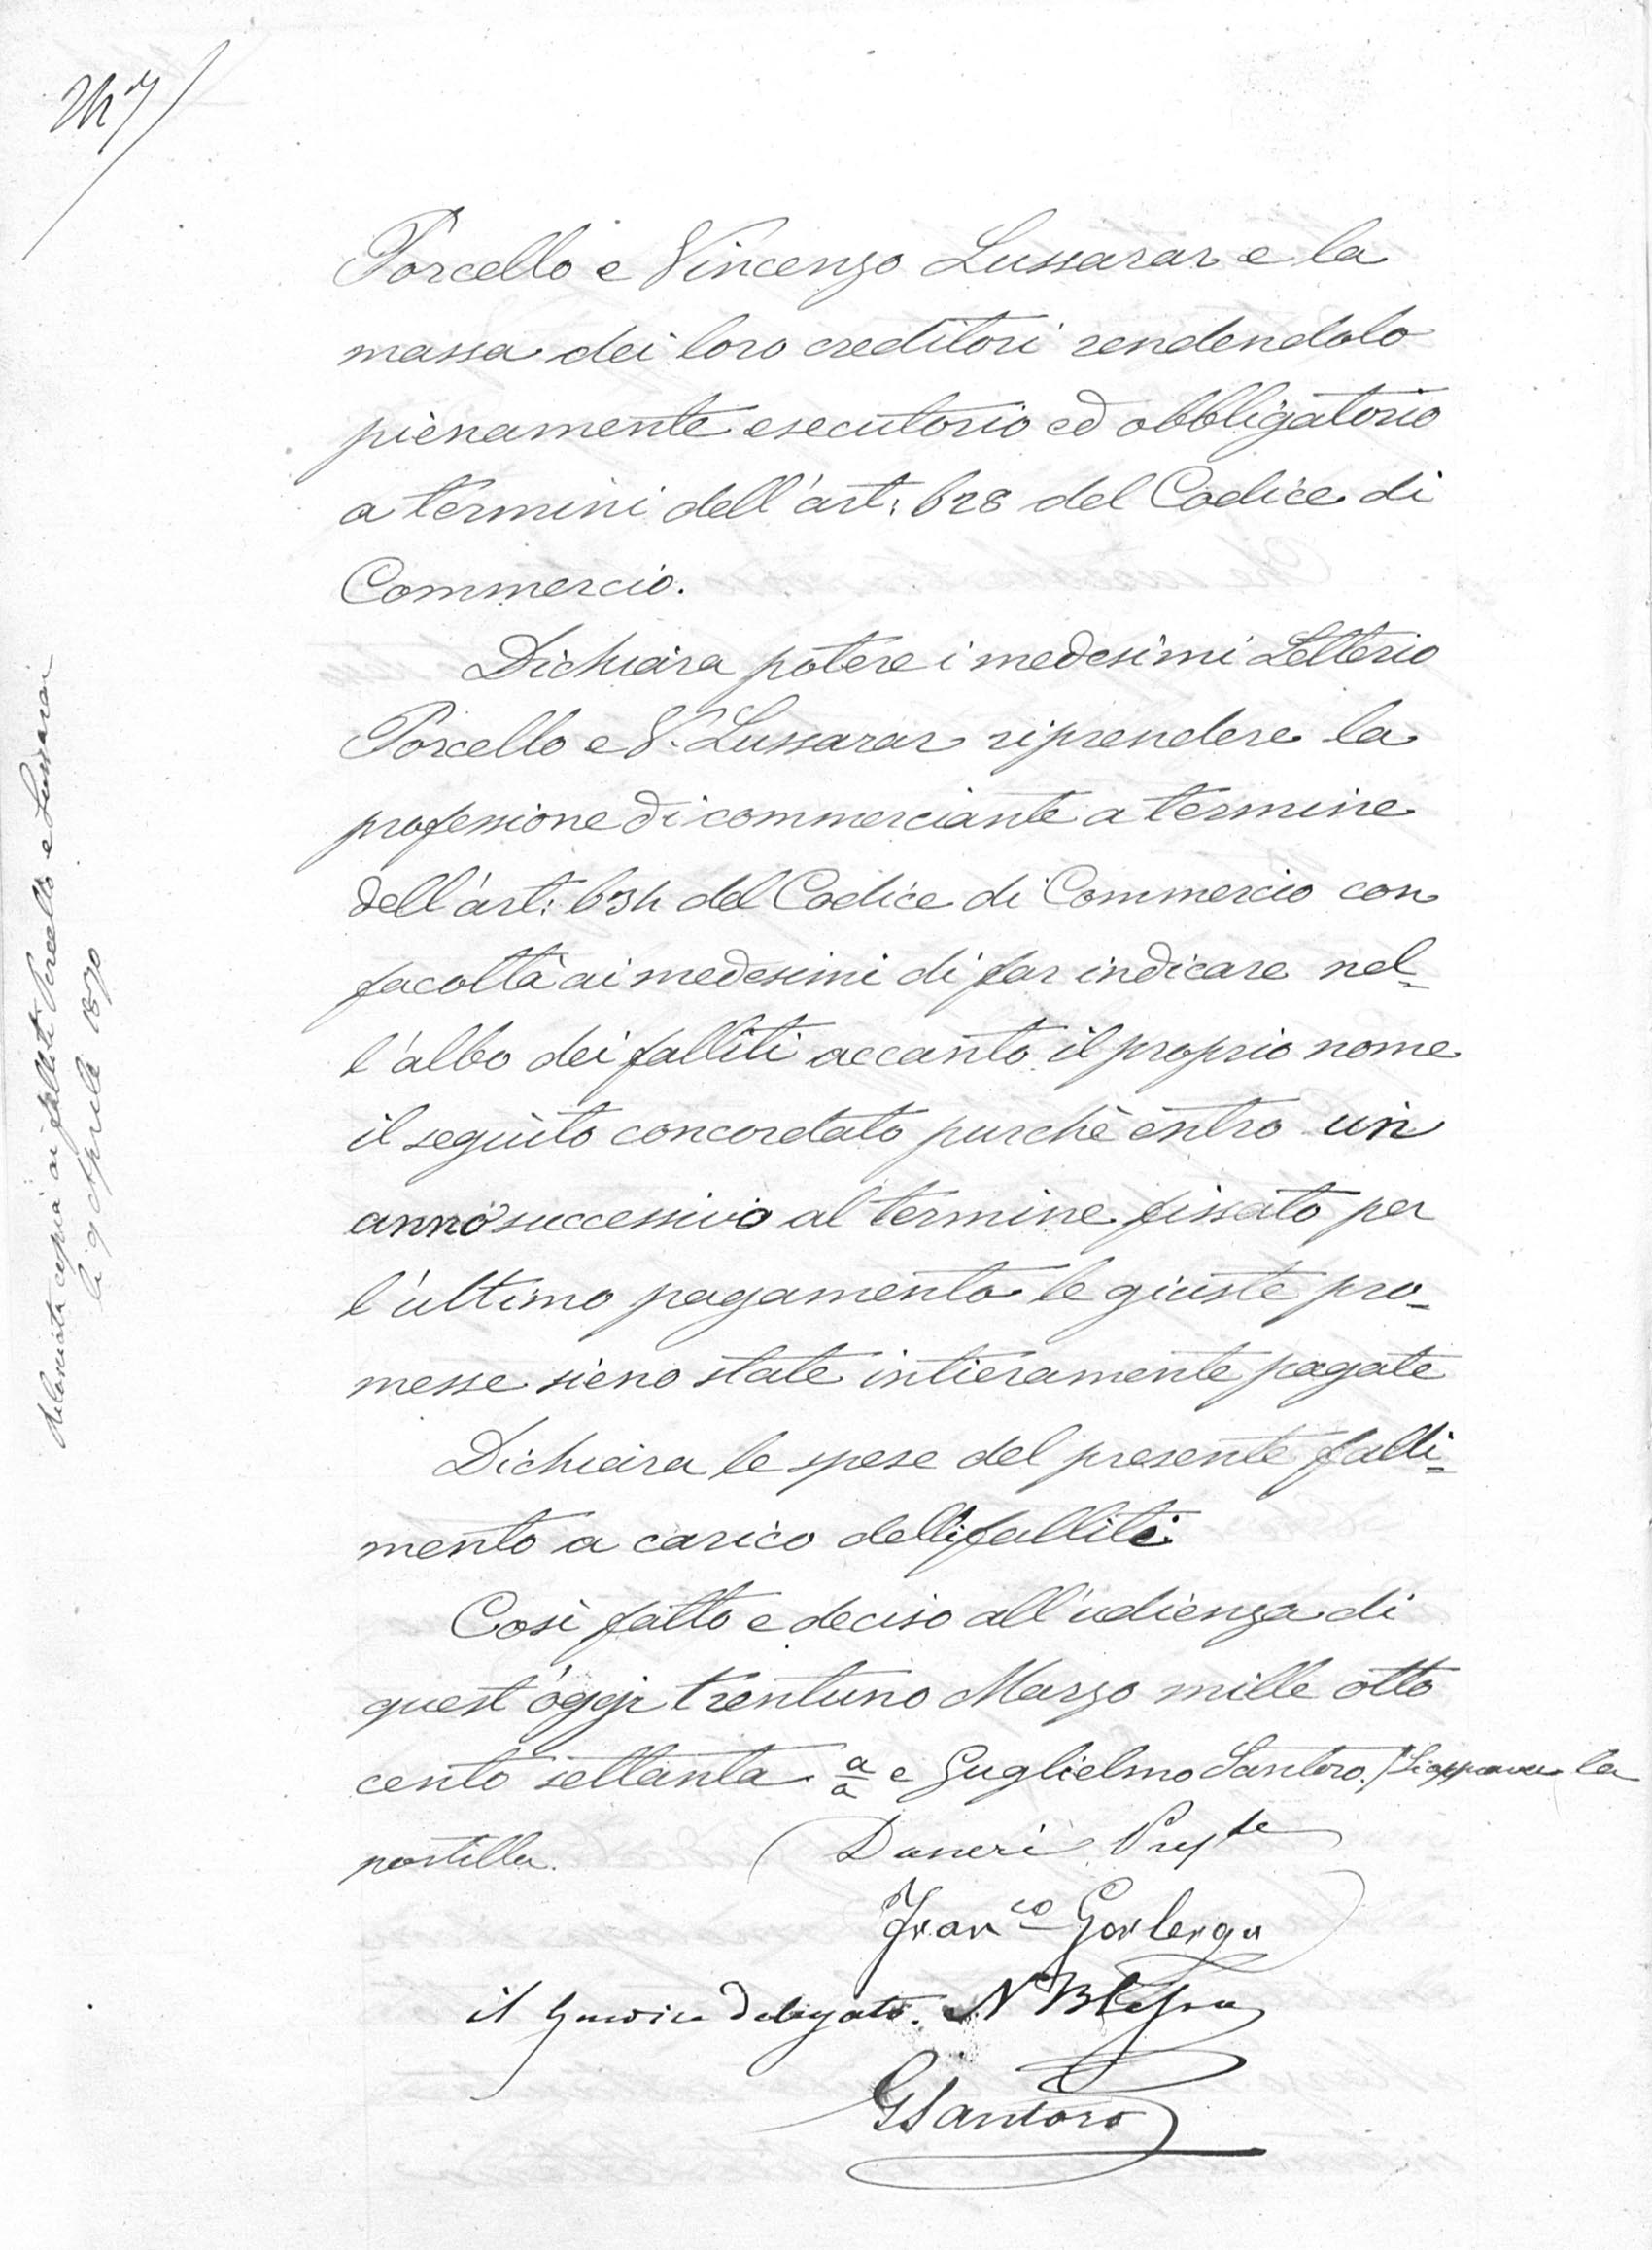 Porcello e Vincenzo Lussarar e la
massa dei loro creditori rendendolo
pienamente esecutorio ed obbligatorio
a termini dell'art: 628 del Codice di
Commercio.
Dichiara potere i medesimi Letterio
Porcello e V. Lussarar riprendere la
professione di commerciante a termine
dell'art: 634 del Codice di Commercio con
facoltà ai medesimi di far indicare nel-
l'albo dei falliti accanto il proprio nome
il seguito concordato purchè entro un
anno successivo al termine fissato per
l'ultimo pagamento le giuste pro-
messe sieno state intieramente pagate
Dichiara le spese del presente falli=
mento a carico delli falliti.
Così fatto e deciso all'udienza di
quest'oggi trentuno Marzo mille otto
cento settanta. a/a e Guglielmo Santoro./Si approva la
postilla.
Daneri Preste
Franco Gorlero
il Giudice Delegato. N
GSantoro
Rilasciata copia ai falliti Porcello e Lussarar
li 9 Aprile 1870